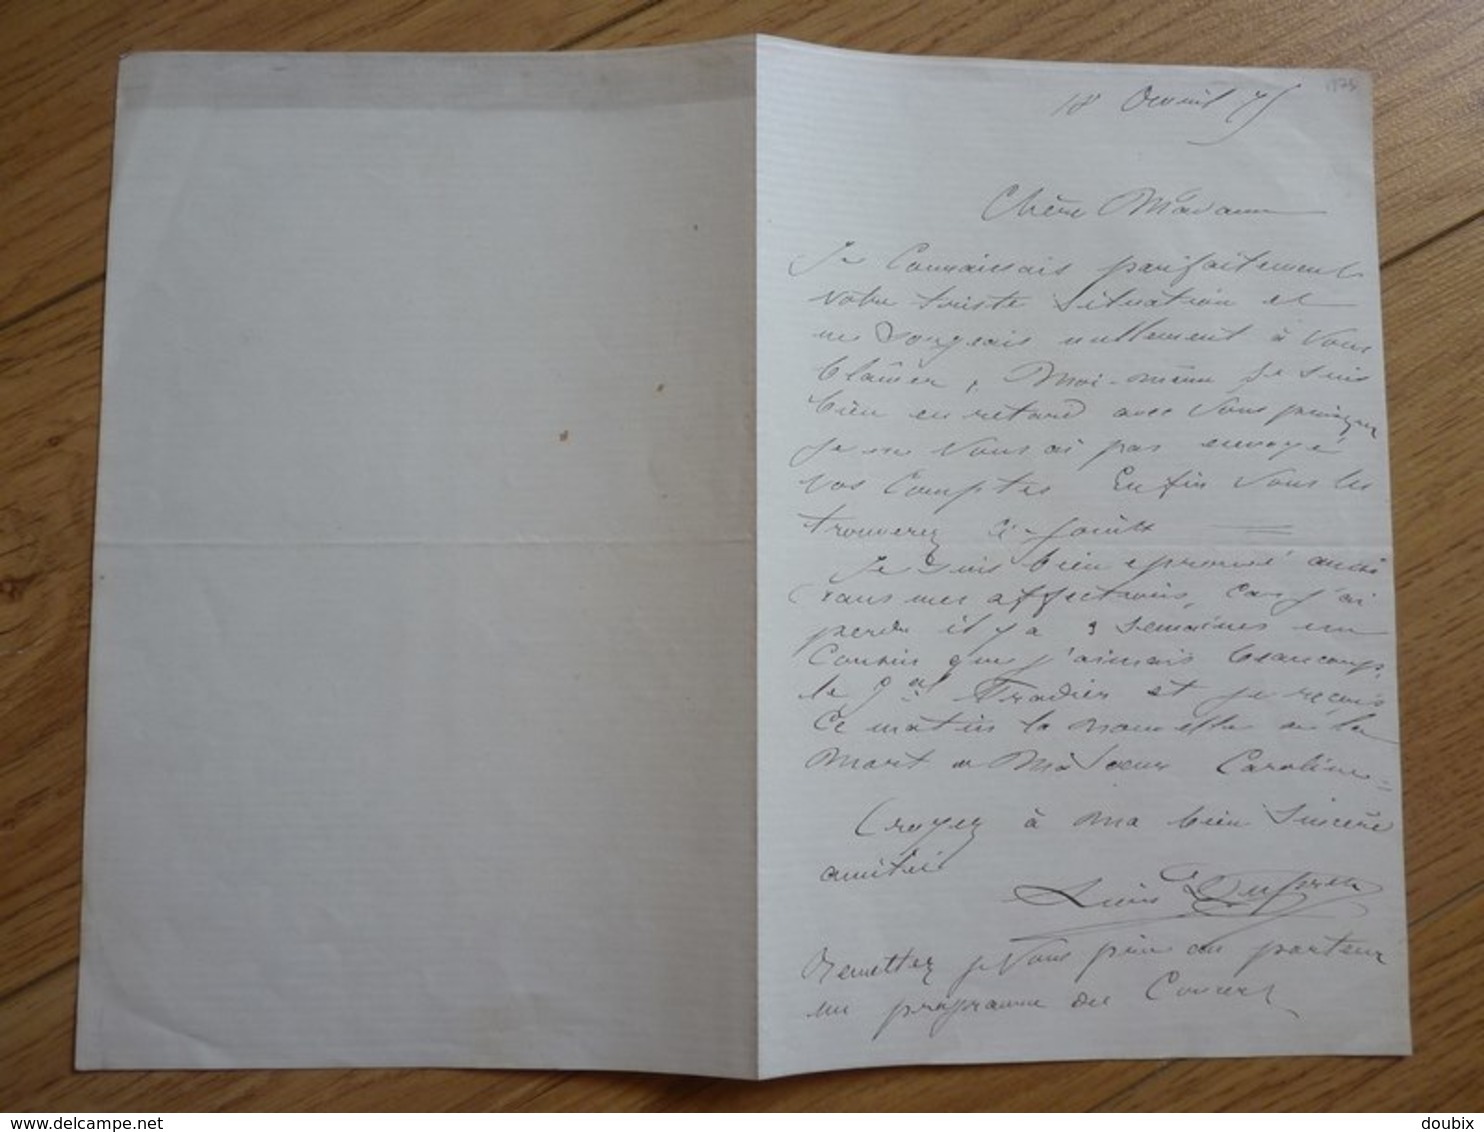 1875
18 Avril 75
Chère Madame
Je Connaissais parfaitement
votre triste Situation et
ne Songeais nullement à Vous
blâmer, Moi-même je suis
bien en retard avec Vous puisque
je ne Vous ai pas envoyé
vos Comptes Enfin Vous les
trouverez ci-joints
Je suis bien eprouvé aussi
dans mes affections, Car j'ai
perdu il y a 3 Semaines un
Cousin que j'aimais beaucoup,
le gal Pradier et je reçois
Ce matin la nouvelle de la
Mort de Ma Soeur Caroline
Croyez à Ma bien Sincère
amitié
Louis
Remettez je Vous prie au porteur
un programme du Concert
doubix